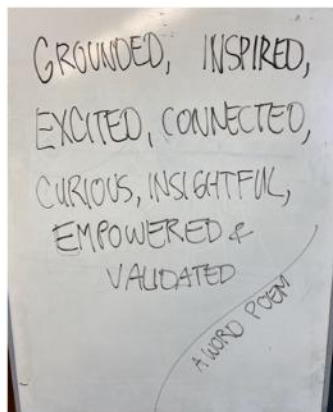 GROUNDED, INSPIRED,
EXCITED, CONNECTED,
CURIOUS, INSIGHTFUL,
EMPOWERED &
VALIDATED
A WORD POEM